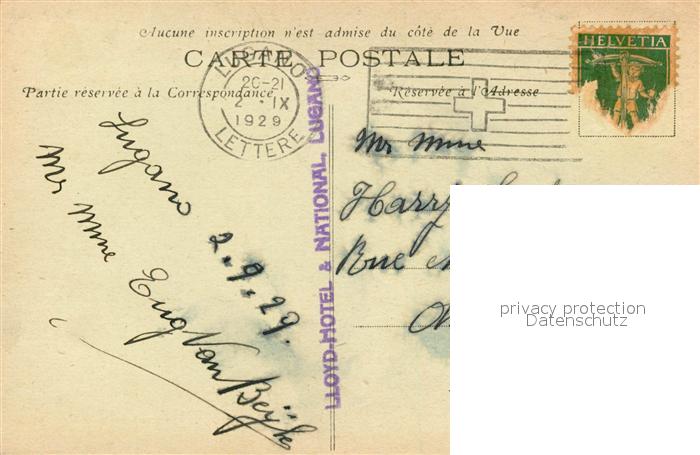 Aucune inscription n'est admise du côté de la Vue
CARTE POSTALE
Partie réservée à la Correspondance
Réservée à l'Adresse
HELVETIA
LUGANO
20-21
2 · IX
1929
LETTERE
LLOYD-HOTEL & NATIONAL, LUGANO
Lugano
2.9.29.
Mr Mme
Eug Van Beÿk
Mr Mme
Harry
Rue
privacy protection
Datenschutz